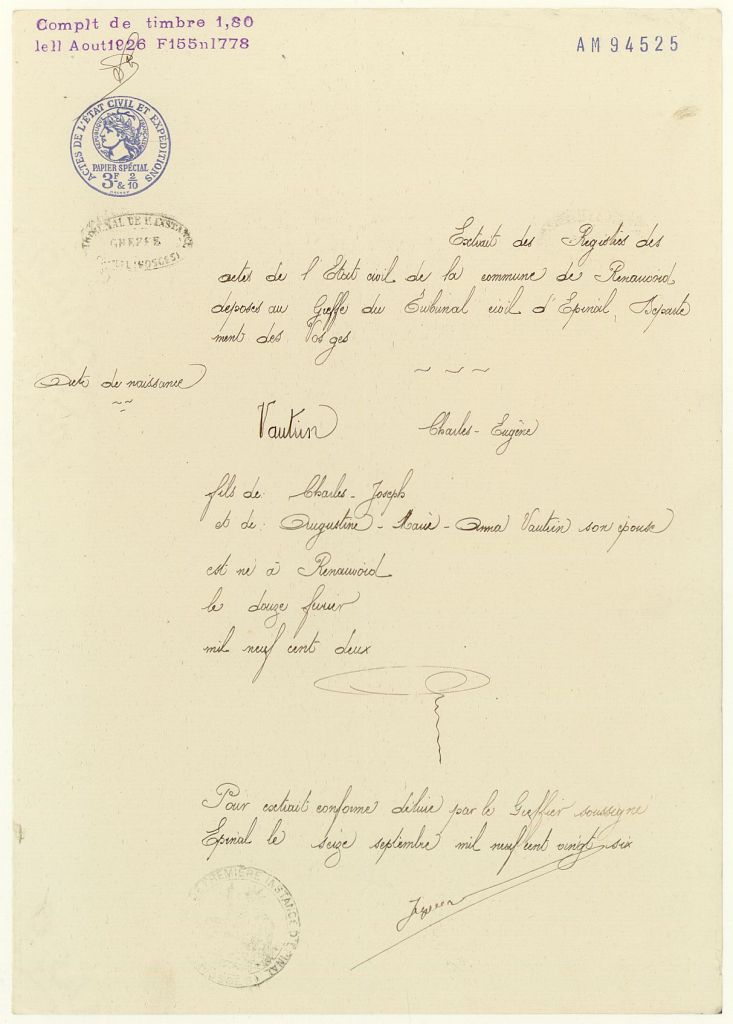 Complt de timbre 1,80
le 11 Aout 1926 F155 n1778
AM94525
ACTES DE L'ÉTAT CIVIL ET EXPÉDITIONS
RÉPUBLIQUE FRANÇAISE
PAPIER SPÉCIAL
3F 2/10
&
TRIBUNAL DE 1e INSTANCE
GREFFE
(VOSGES)
Extrait des Registres des
actes de l'Etat civil de la commune de Renauvoid
déposés au Greffe du Tribunal civil d'Epinal, Départe
ment des Vosges
Acte de naissance
Vautrin Charles-Eugène
fils de: Charles-Joseph
et de: Augustine-Marie-Anna Vautrin son épouse
est né à Renauvoid
le douze février
mil neuf cent deux
Pour extrait conforme délivré par le Greffier soussigné
Epinal le seize septembre mil neuf cent vingt six
PREMIÈRE INSTANCE D'EPINAL